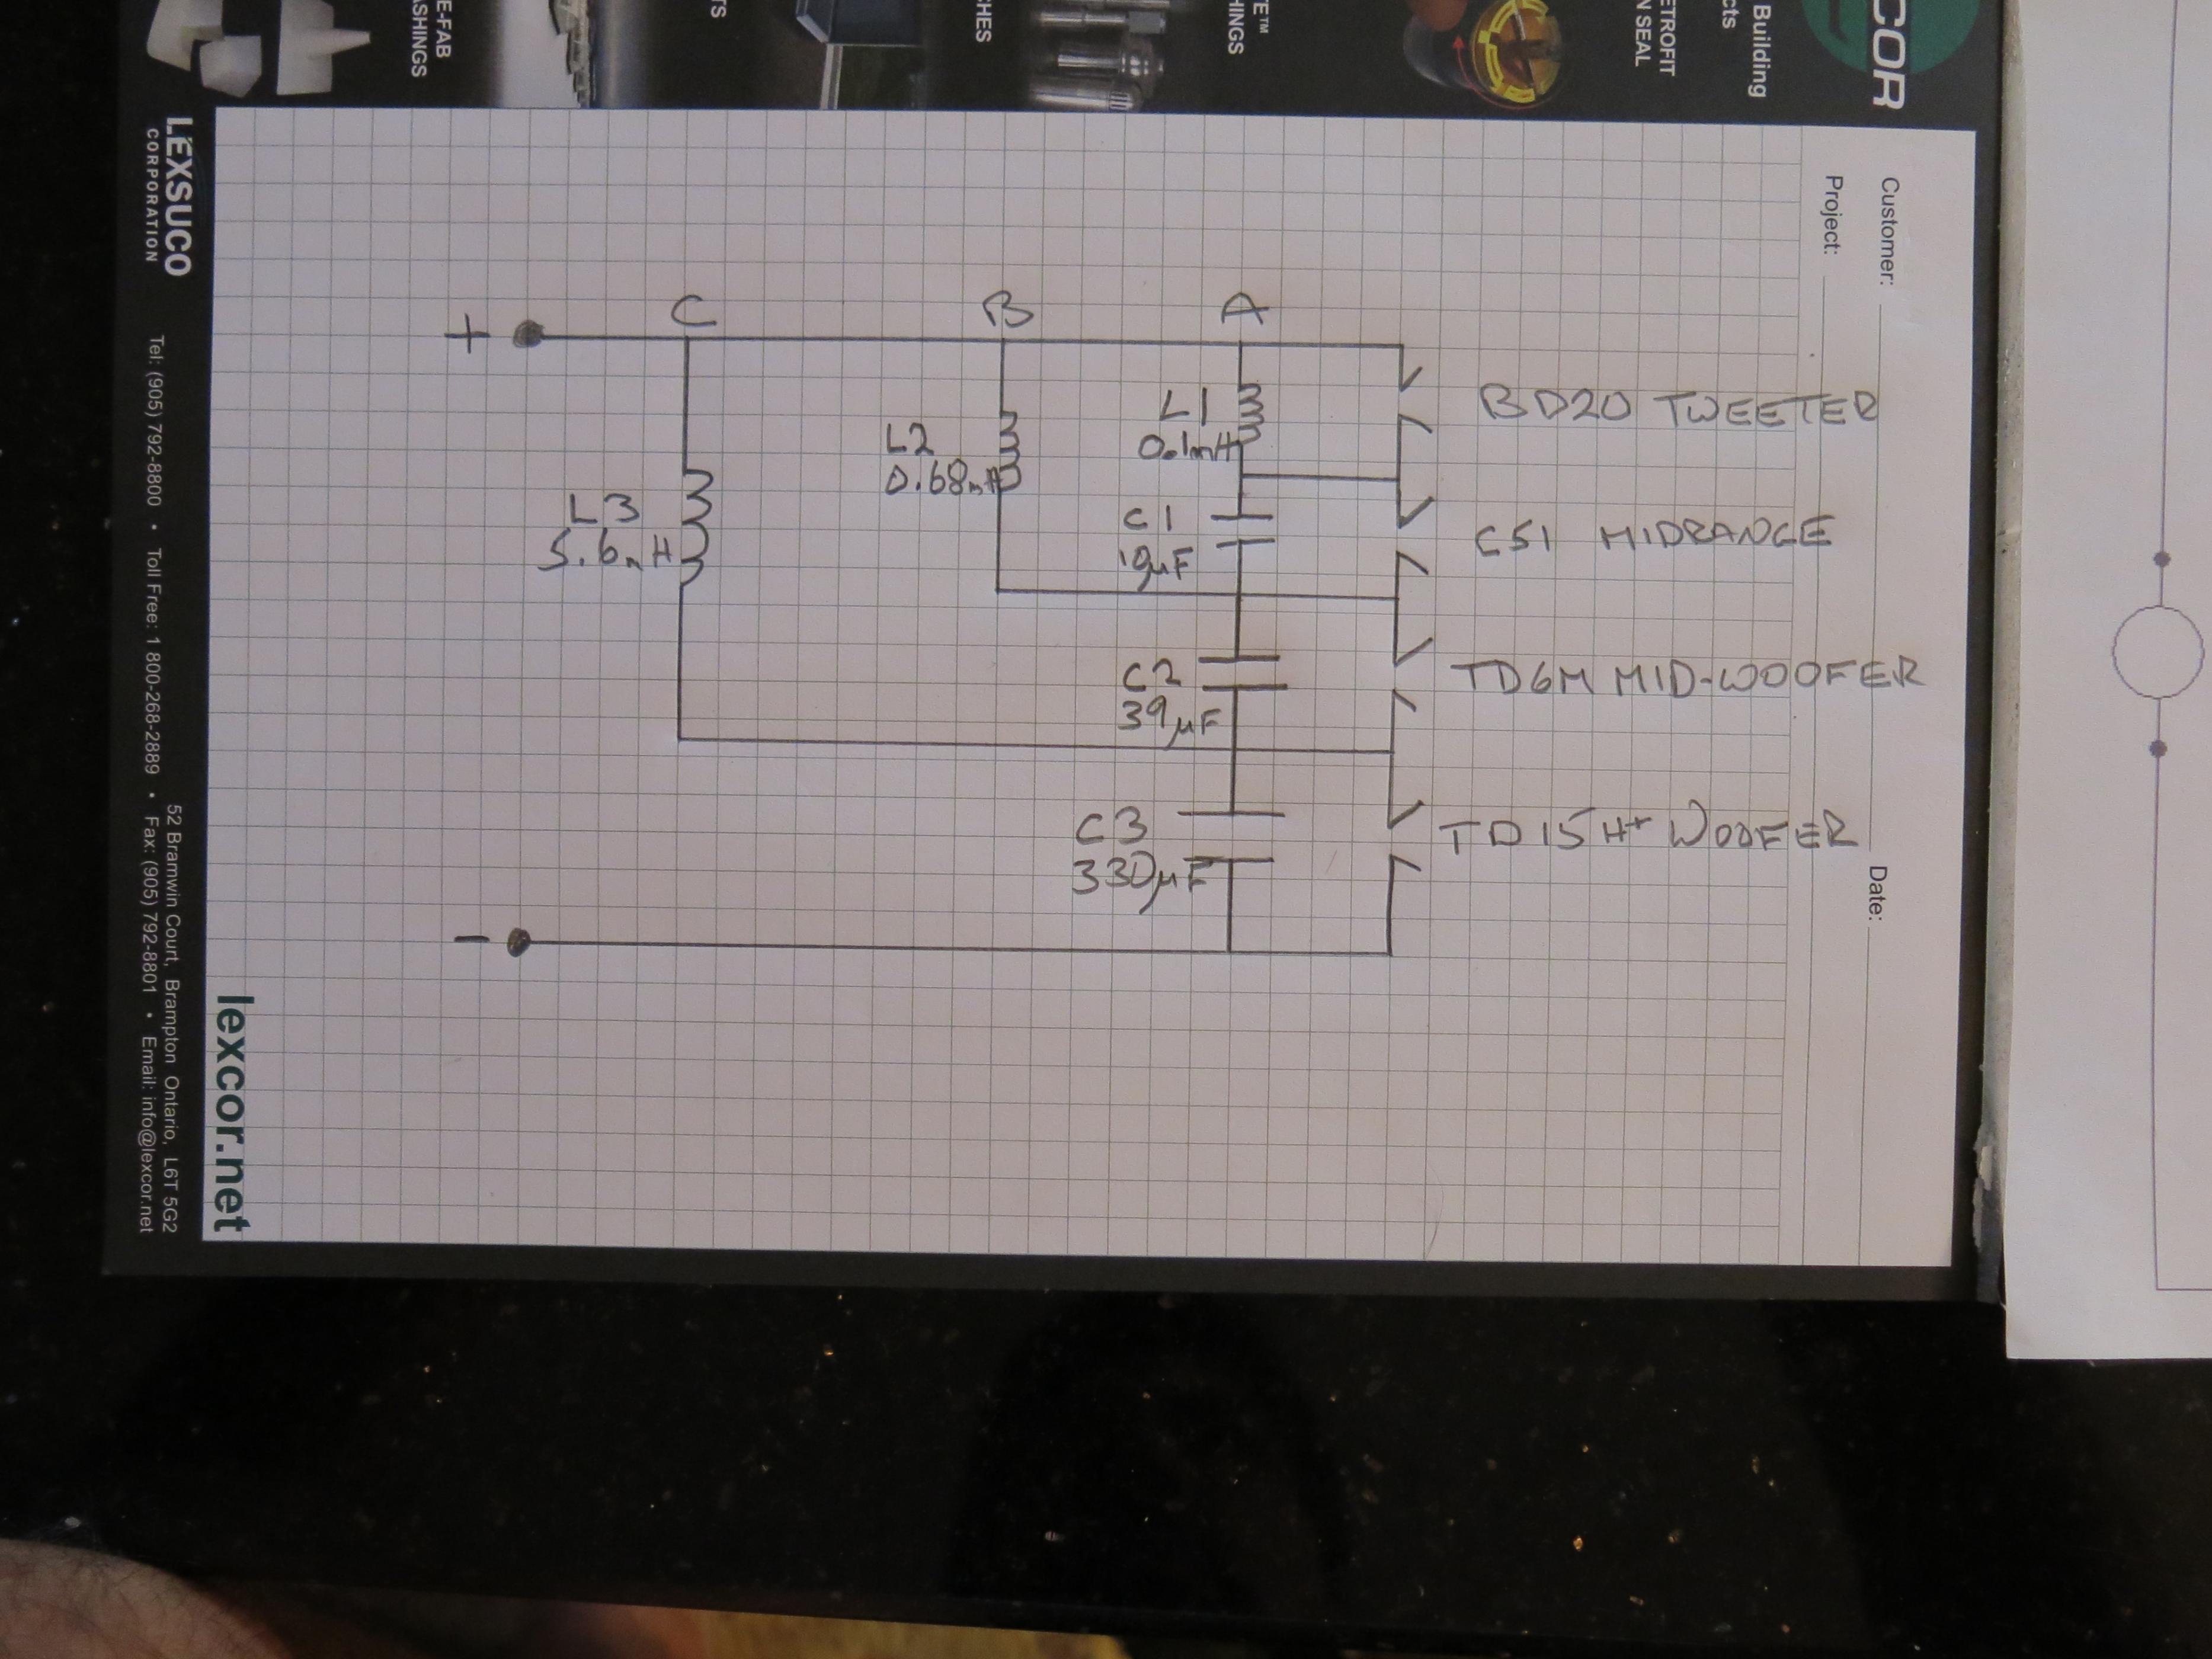 COR
Building
cts
ETROFIT
N SEAL
TE™
HINGS
CHES
TS
E-FAB
ASHINGS
Customer:
Project:
Date:
BD20 TWEETER
CS1 MIDRANGE
TD6M MID-WOOFER
TD15H+ WOOFER
A
B
C
+
-
L1
0.1mH
C1
10µF
L2
0.68mH
C2
39µF
L3
5.6mH
C3
330µF
LEXSUCO
CORPORATION
52 Bramwin Court, Brampton Ontario, L6T 5G2
Tel: (905) 792-8800 • Toll Free: 1 800-268-2889 • Fax: (905) 792-8801 • Email: info@lexcor.net
lexcor.net